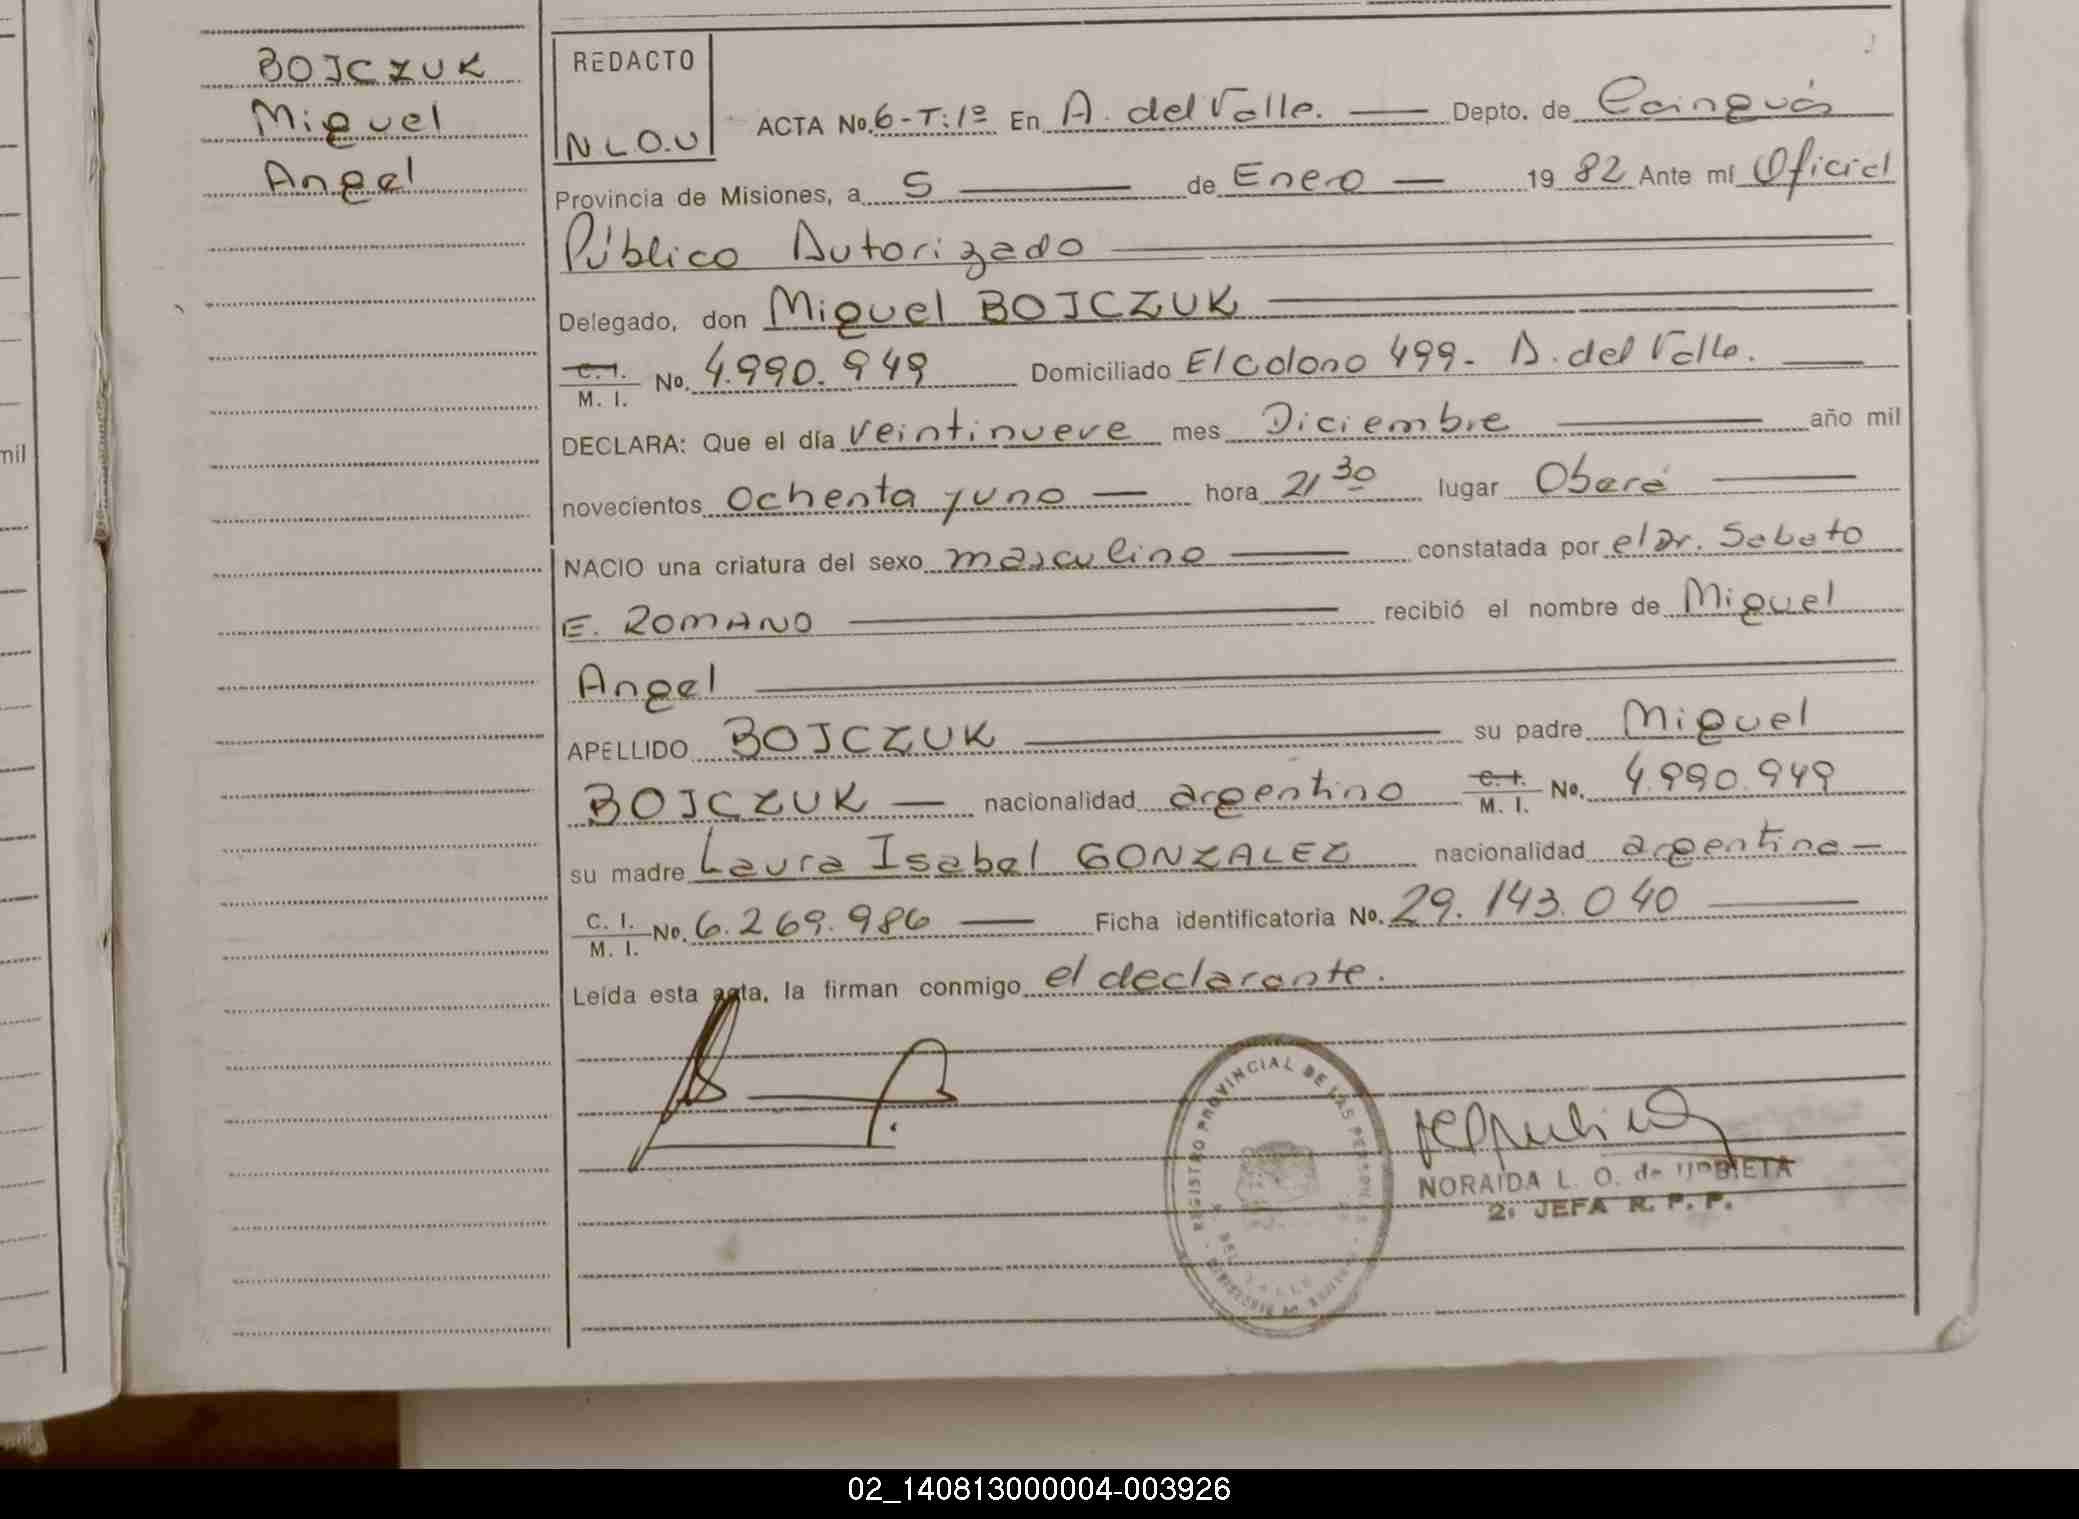 BOJCZUK
Miguel
Angel
mil
REDACTO
N L O.U
ACTA No. 6-T:1º En A. del Valle. Depto. de Cainguás
Provincia de Misiones, a 5 de Enero 19 82 Ante mí Oficial
Público Autorizado
Delegado, don Miguel BOJCZUK
C. I.
M. I. No. 4.990.949 Domiciliado El Colono 499- A. del Valle.
DECLARA: Que el día veintinueve mes Diciembre año mil
novecientos ochenta y uno hora 21 30 lugar Oberá
NACIO una criatura del sexo masculino constatada por el Dr. Sabato
E. ROMANO recibió el nombre de Miguel
Angel
APELLIDO BOJCZUK su padre Miguel
BOJCZUK nacionalidad argentino C. I. M. I. No. 4.990.949
su madre Laura Isabel GONZALEZ nacionalidad argentina
C. I. M. I. No. 6.269.986 Ficha identificatoria No. 29.143.040
Leída esta acta, la firman conmigo el declarante.
REGISTRO PROVINCIAL DE LAS PERSONAS
DEL VALLE
NORAIDA L. O. de URBIETA
2: JEFA R. P. P.
02_140813000004-003926